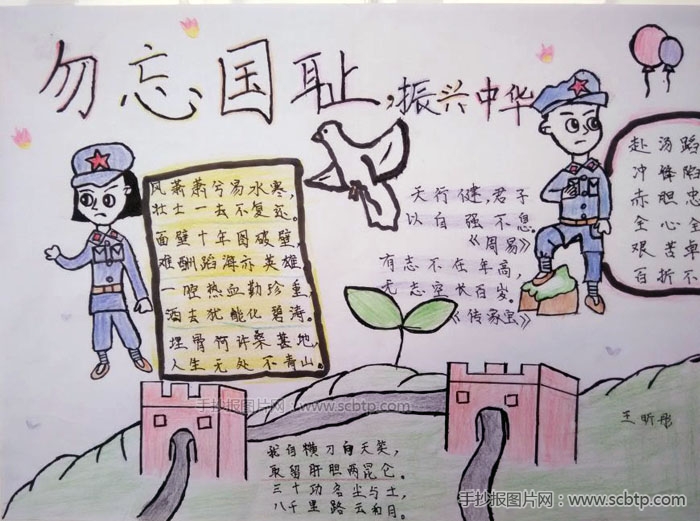 勿忘国耻,振兴中华
风萧萧兮易水寒,
壮士一去不复还。
面壁十年图破壁,
难酬蹈海亦英雄
一腔热血勤珍重,
洒去犹能化碧涛。
埋骨何许桑基地,
人生无处不青山。
天行健,君子
以自强不息
《周易》
有志不在年高,
无志空长百岁。
《传家宝》
赴汤蹈
冲锋陷
赤胆忠
全心全
艰苦卓
百折不
王昕彤
我自横刀向天笑,
取留肝胆两昆仑。
三十功名尘与土,
八千里路云和月。
手抄报图片网:www.scbtp.com
手抄报图片网:www.scbtp.com